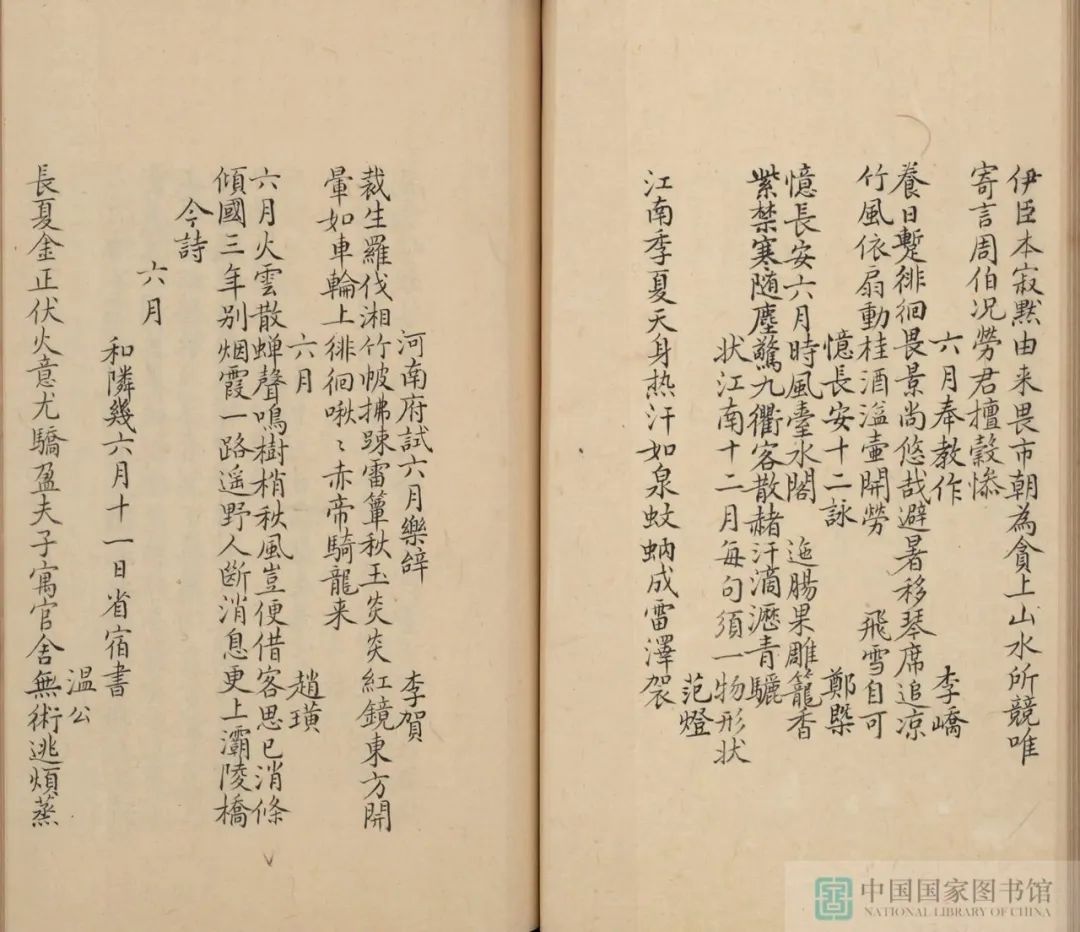 伊臣本寂黙由来畏市朝為貪上山水所競唯
寄言周伯况勞君擅縠慘
六月奉教作 李嶠
養日蹔徘徊畏景尚悠哉避暑移琴席追凉
竹風依扇動桂酒溢壷開勞 飛雪自可
憶長安十二詠 鄭槩
憶長安六月時風臺水閣 迤腸果雕籠香
紫禁寒随塵驚九衢客散赭汗滴瀝青驪
状江南十二月每句須一物形状
范燈
江南季夏天身热汗如泉蚊蚋成雷澤袈
河南府試六月樂辝 李賀
裁生羅伐湘竹帔拂踈雷簟秋玉炎炎紅鏡東方開
暈如車輪上徘徊啾〻赤帝騎龍来
六月 趙璜
六月火雲散蝉聲鳴樹梢秋風豈便借客思已消條
傾國三年别烟霞一路遥野人断消息更上灞陵橋
今詩
六月
和隣幾六月十一日省宿書
温公
長夏金正伏火意尤驕盈夫子寓官舍無術逃煩蒸
中国国家图书馆
NATIONAL LIBRARY OF CHINA